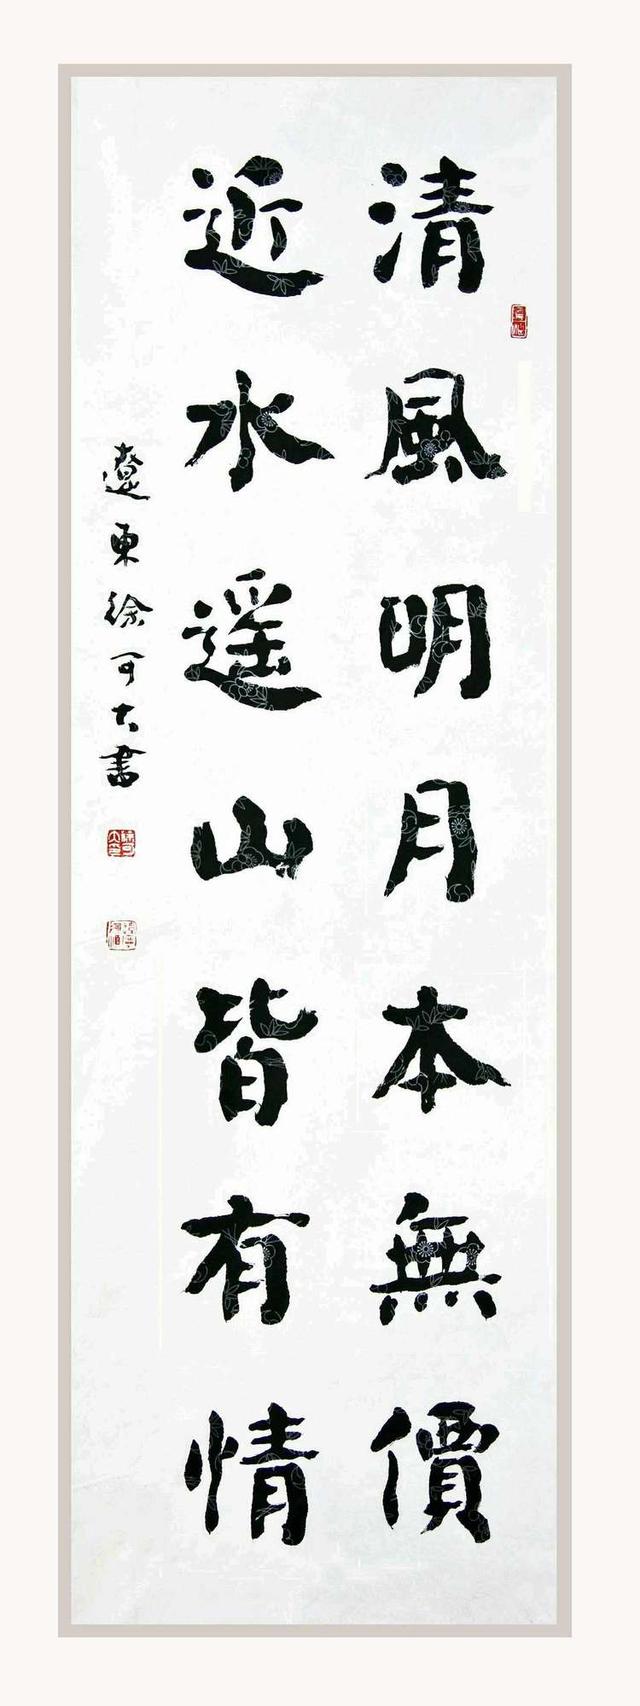 清風明月本無價
近水遥山皆有情
遼東徐可大書